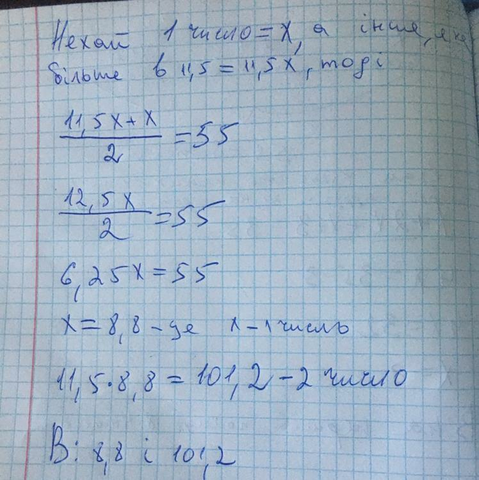 Нехай 1 число = х, а інше, яке
більше в 11,5 = 11,5х, тоді
11,5х + х / 2 = 55
12,5х / 2 = 55
6,25х = 55
х = 8,8 - це х - 1 число
11,5 · 8,8 = 101,2 - 2 число
В: 8,8 і 101,2